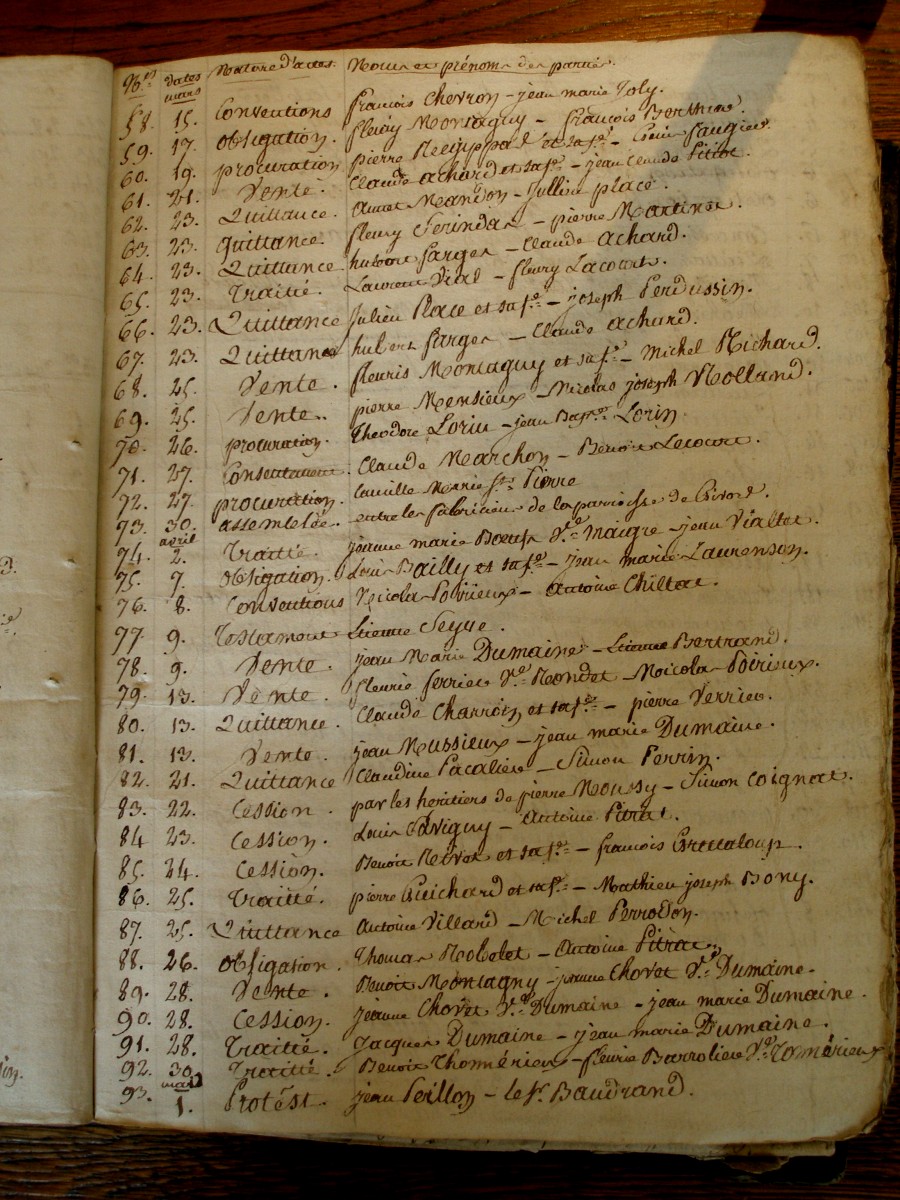 Nos dates Nature d'actes. Noms et prénoms des parties.
mars
58. 15. Conventions francois Chevron - jean marie Joly.
59. 17. obligation. fleury Montagny - francois Berthier.
60. 19. procuration pierre et sa fe - faugier.
61. 21. Vente. Claude achard et sa fe - jean claude Pitiot.
62. 23. Quittance. Mandon - Jullien place.
63. 23. quittance. fleury Serindar - pierre Martinot.
64. 23. Quittance hubert farges - Claude achard.
65. 23. Traitté. Laurent Vial - fleury Lacourt.
66. 23. Quittance Julien Place et sa fe - joseph Perdussin.
67. 23. Quittance hubert farges - Claude achard.
68. 25. Vente. fleuris Montagny et sa fe - Michel Richard.
69. 25. Vente. pierre Monsieux - Nicolas joseph Rolland.
70. 26. procuration. Théodore Lorin - jean Bapte Lorin.
71. 27. Consentement. Claude Marchon - Benoit Lecourt.
72. 27. procuration. Camille Marie st Pierre
73. 30. assemblée. entre les fabriciens de la parroisse de Givord.
avril
74. 2. Traitté. jeanne marie ve maigre - jean Vialtet.
75. 7. obligation. Louis Bailly et sa fe - jean marie Laurenson.
76. 8. Conventions Nicolas Poirieux - Antoine Chillat.
77. 9. Testament Etienne Seyve.
78. 9. Vente. jean Marie Dumaine - Etienne Bertrand.
79. 13. Vente. fleurie ferriere ve Rondet - Nicolas Poirieux.
80. 13. Quittance. Claude Charrotin et sa fe - pierre Verrier.
81. 13. Vente jean Mussieux - jean marie Dumaine.
82. 21. Quittance Claudine Pacaliere - Simon Perrin.
83. 22. Cession. par les heritiers de pierre Moussy - Simon Coignat.
84 23. Cession. Louis - Antoine Pitrat.
85. 24. Cession. Benoit et sa fe - francois Grataloup.
86. 25. Traitté. pierre Guichard et sa fe - Mathieu joseph Bony.
87. 25. Quittance Antoine Villard - Michel Perrodon.
88. 26. obligation. Thomas Robelet - Antoine Pitrat.
89. 28. Vente. Benoit Montagny - jeanne Chovet ve Dumaine.
90. 28. Cession. jeanne Chovet ve Dumaine - jean marie Dumaine.
91. 28. Traitté. Jacques Dumaine - jean marie Dumaine.
92. 30. Traitté. Benoit Thomérieux - fleurie Barroliere ve Tomérieux
mars
93. 1. Protést. jean Peillon - le sr Baudrand.